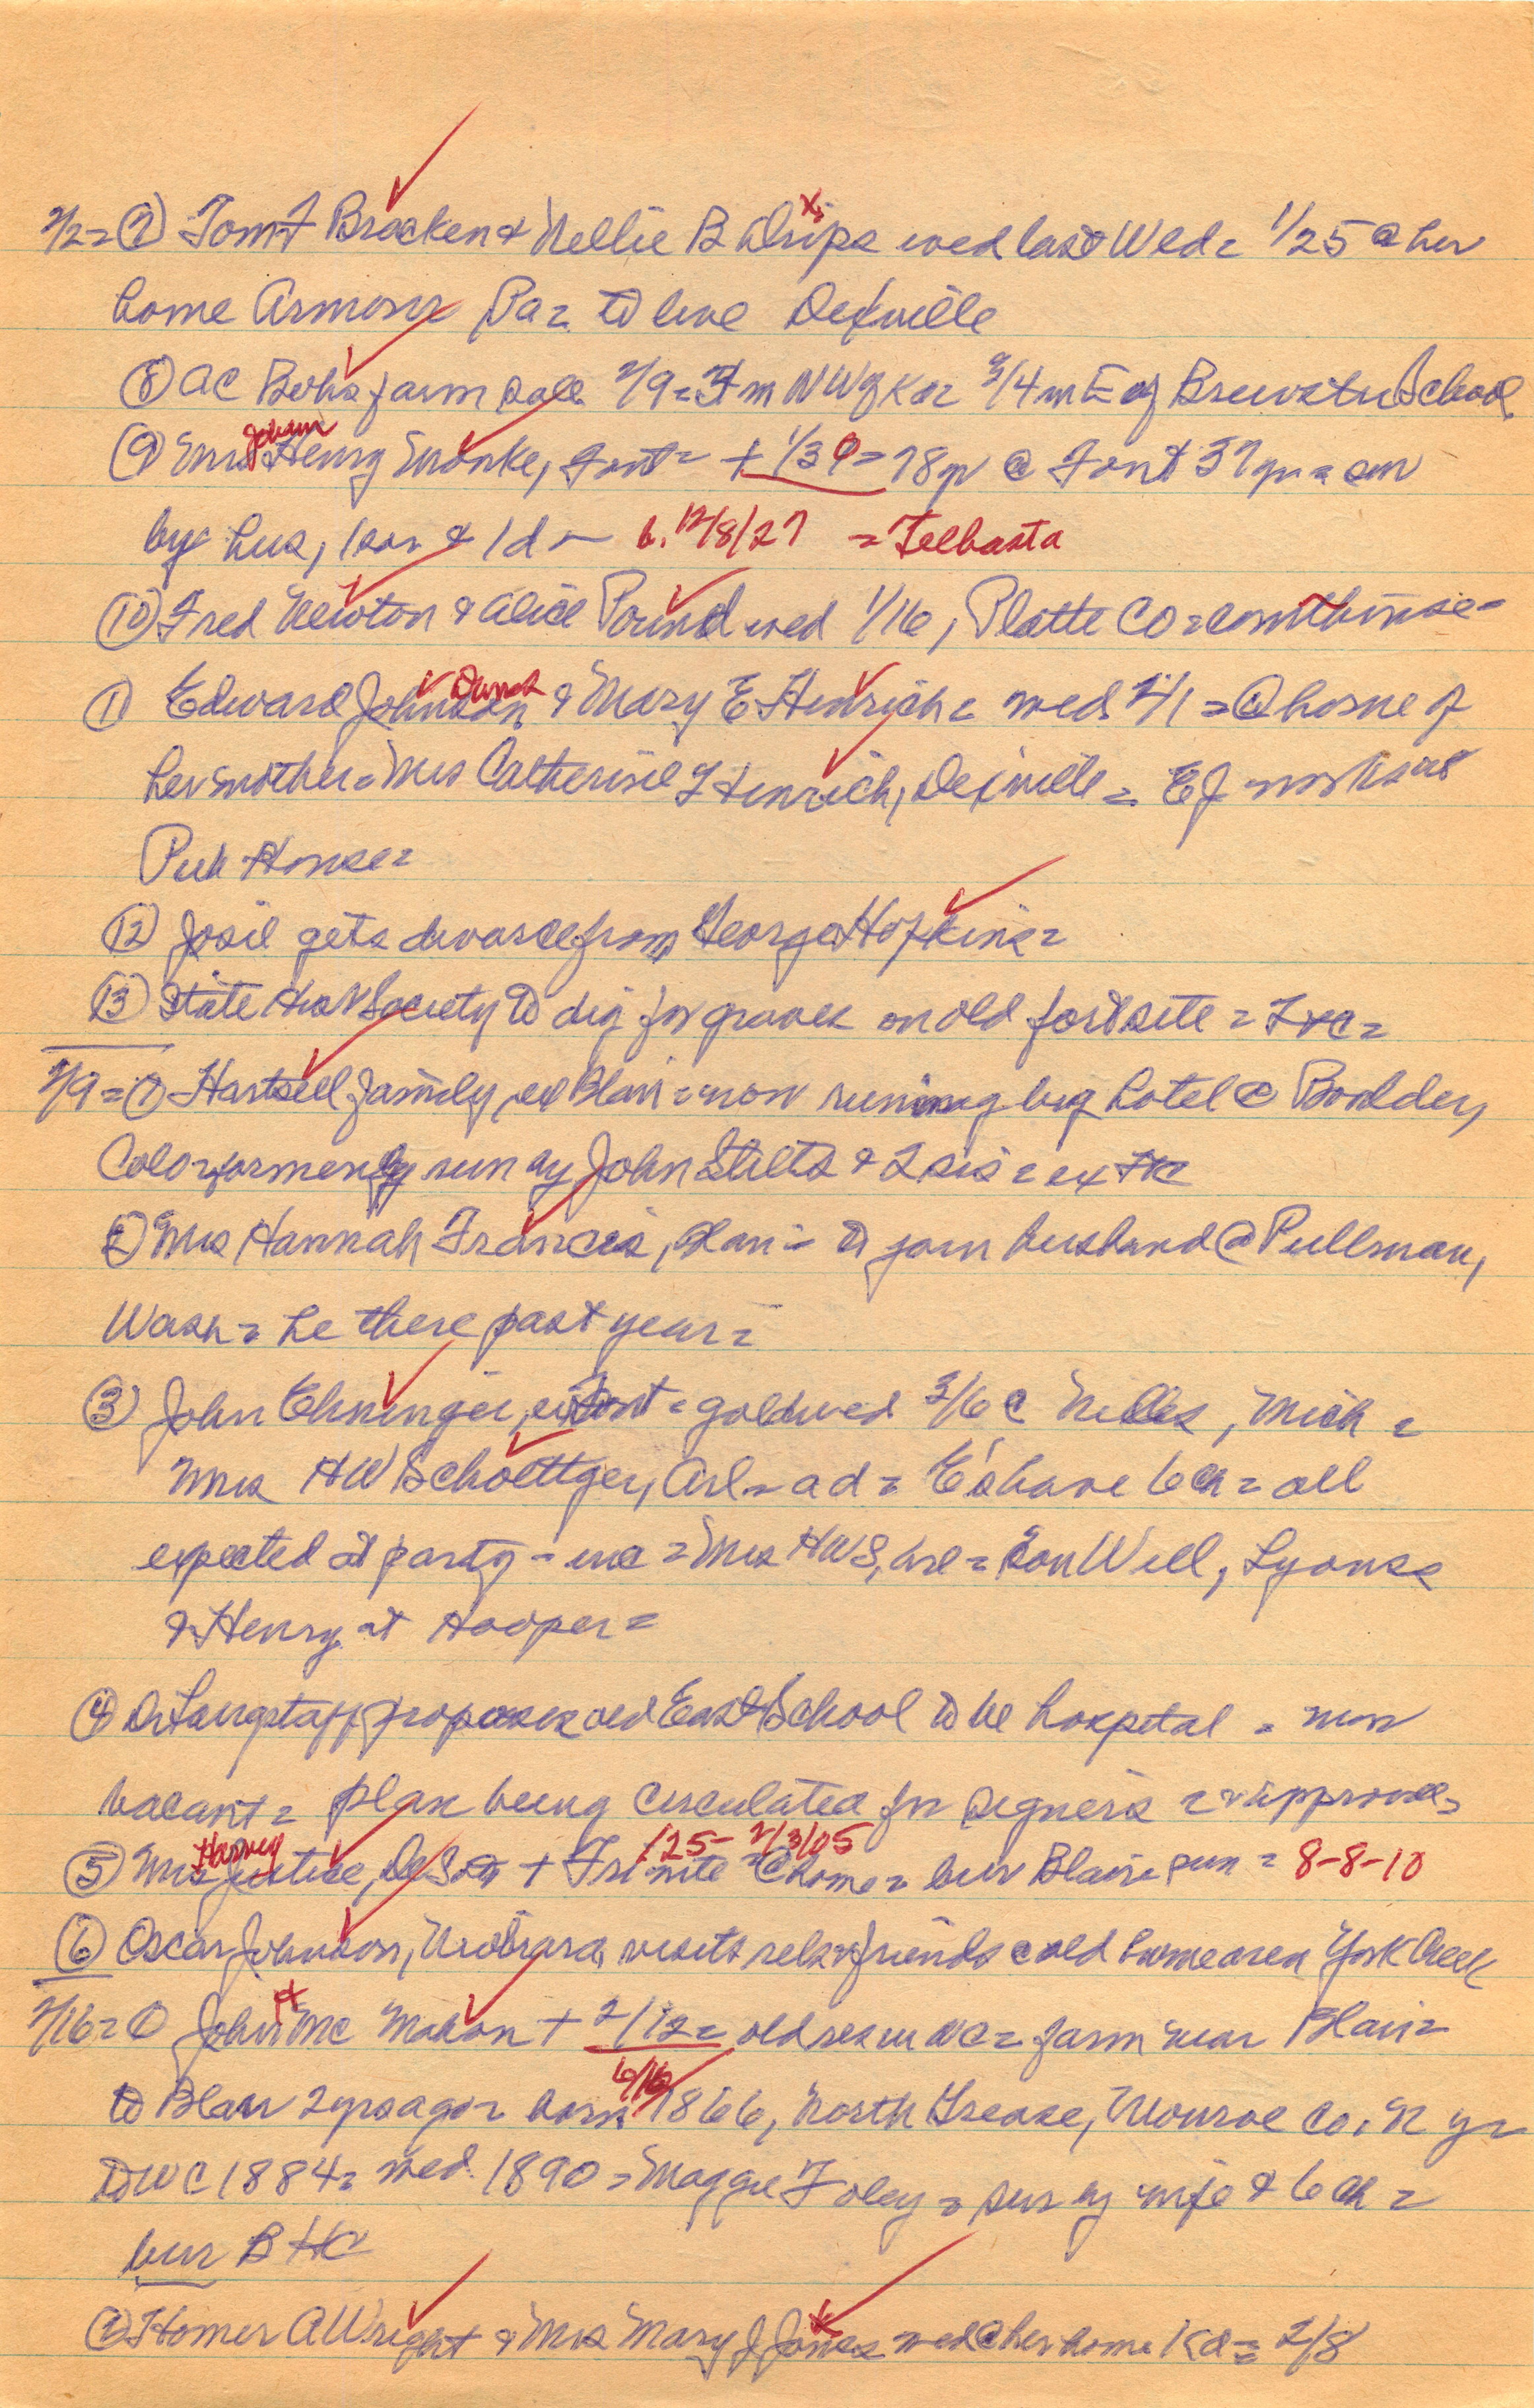 2/2 = ⑦ Tom F Bracken & Nellie B Drips wed last Wed = 1/25 @ her
home Armour Pa = to live DeSoto
⑧ AC Bohs farm sale 2/9 = 3 m NW of Ka = 3/4 m E of Brewster School
⑨ Mrs Johann Henry Monke, Font = + 1/30 = 78 yr @ Font 37 yr = sur
by hus, 1 son & 1 d – b. 12/8/27 = Telbasta
⑩ Fred Newton & Alice Pound wed 1/16, Platte Co = courthouse =
① Edward Johnson & Mary E Henrich = wed 2/1 = @ home of
her mother = Mrs Catherine Henrich, = EJ works at
Pub House =
⑫ Josie gets divorce from George Hopkins =
⑬ State Hist Society to dig for graves on old fort site = Ft C =
2/9 = ① Hartsell family, ex Blair = now running big hotel @ Boulder,
Colo = formerly run by John Stilts & = ex FtC
② Mrs Hannah Francis, Blair = to join husband @ Pullman,
Wash = he there past year =
③ John Ehninger, ex Font = gold wed 3/6 @ Nilles, Mich =
Mrs HW Schoettger, Arl = a d = E's have 6 ch = all
expected at party – inc = Mrs HWS, Arl = son Will, Lyons
& Henry at Hooper =
④ Dr Langstaff proposes old East School to be hospital = now
vacant = plan being circulated for signers = approval =
⑤ Mrs Harvey Justice, DeSoto + Fri nite 125 – 2/3/05 @ home = bur Blair = 8-8-10
⑥ Oscar Johnson, Niobrara, visits rels & friends @ old home area York Creek
2/16 = ① John H McMahon + 2/12 = old res in WC = farm near Blair =
to Blair 2 yrs ago = born 6/16/1866, North Grease, Monroe Co, N Y =
to WC 1884 = wed 1890 = Maggie Foley = sur by wife & 6 ch =
bur BHC
② Homer A Wright & Mrs Mary J Jones wed @ her home Ka = 2/8